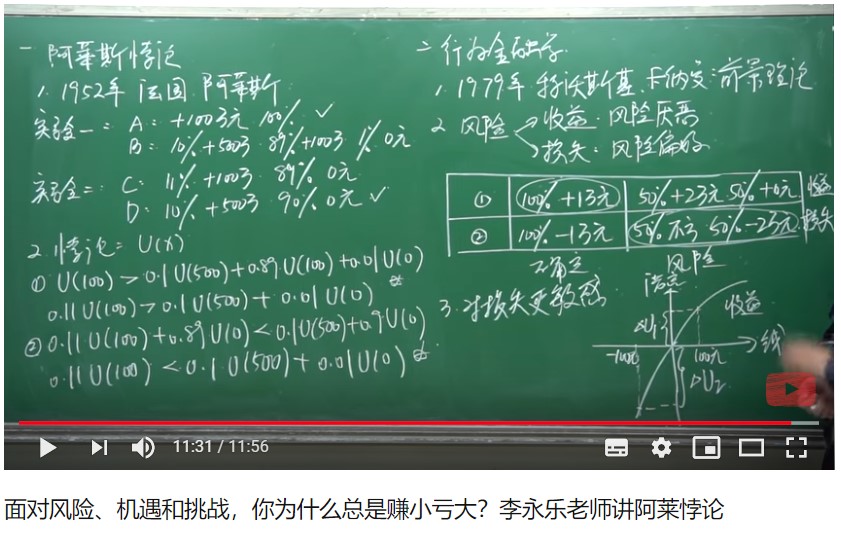 一 阿莱斯悖论
1. 1952年 法国 阿莱斯
实验一: A: +100万元 100% ✓
B: 10% +500万 89% +100万 1% 0元
实验二: C: 11% +100万 89% 0元
D: 10% +500万 90% 0元 ✓
2. 悖论: U(x)
① U(100) > 0.1U(500)+0.89U(100)+0.01U(0)
0.11U(100) > 0.1U(500)+0.01U(0)
② 0.11U(100)+0.89U(0) < 0.1U(500)+0.9U(0)
0.11U(100) < 0.1U(500)+0.01U(0)
二 行为金融学
1. 1979年 特沃斯基、卡纳曼: 前景理论
2. 风险 收益: 风险厌恶
损失: 风险偏好
① 100% +1万元 50% +2万元 50% +0元 收益
② 100% -1万元 50% 不亏 50% -2万元 损失
确定 风险
3. 对损失更敏感
ΔU₁ 收益
-100元 100元 钱
ΔU₂
11:31 / 11:56
面对风险、机遇和挑战，你为什么总是赚小亏大？李永乐老师讲阿莱悖论